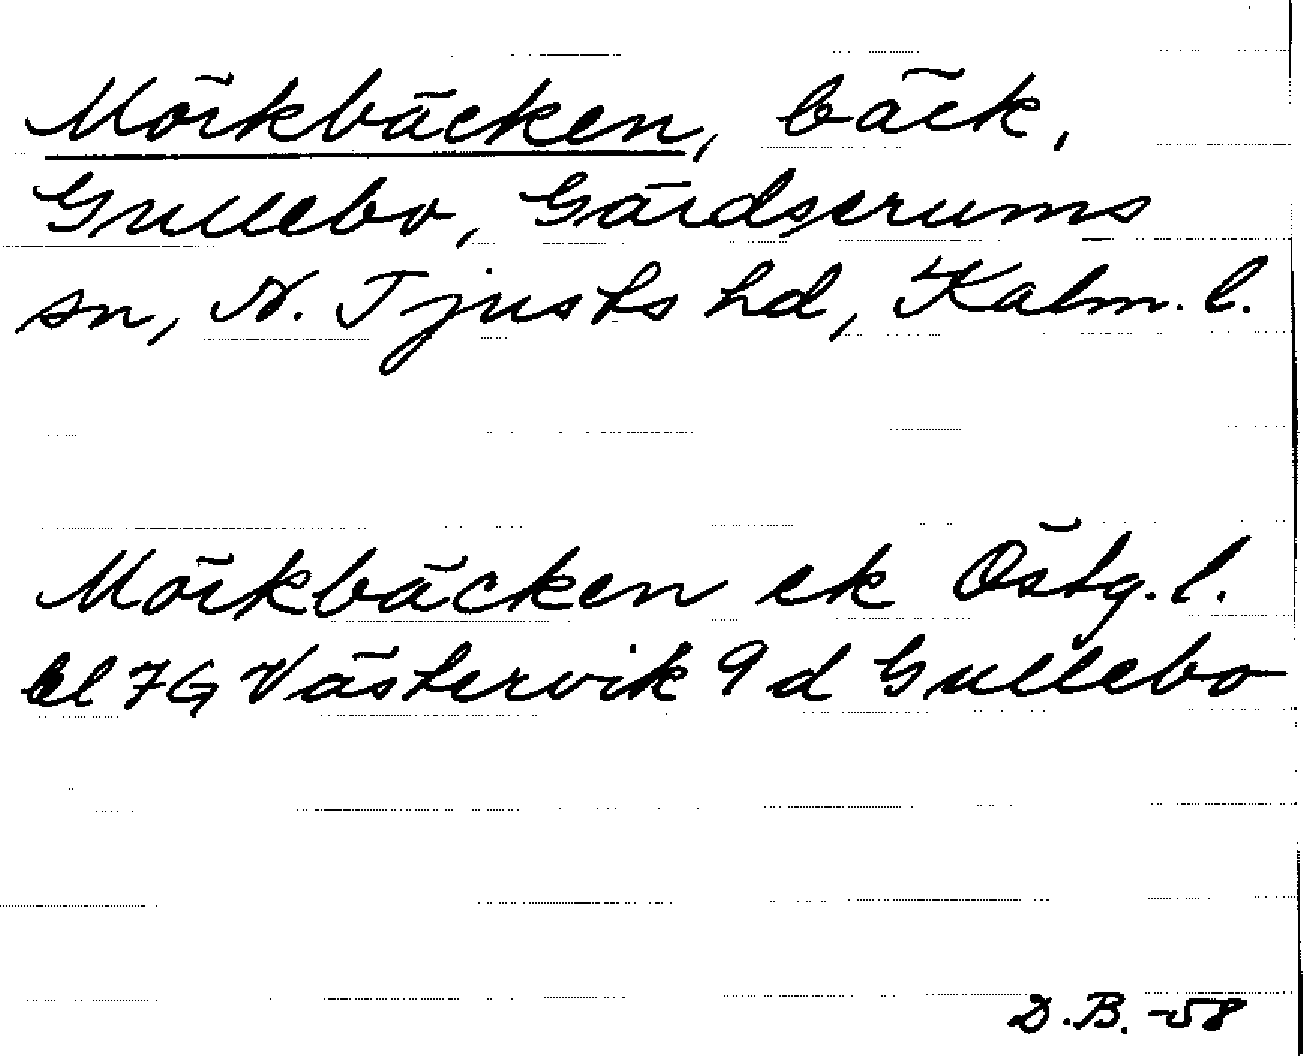 Mörkbäcken, bäck,
Gullebo, Gärdserums
sn, N. Tjusts hd, Kalm. l.
Mörkbäcken ek Östg. l.
bl 7G Västervik 9 d Gullebo
D.B. -58